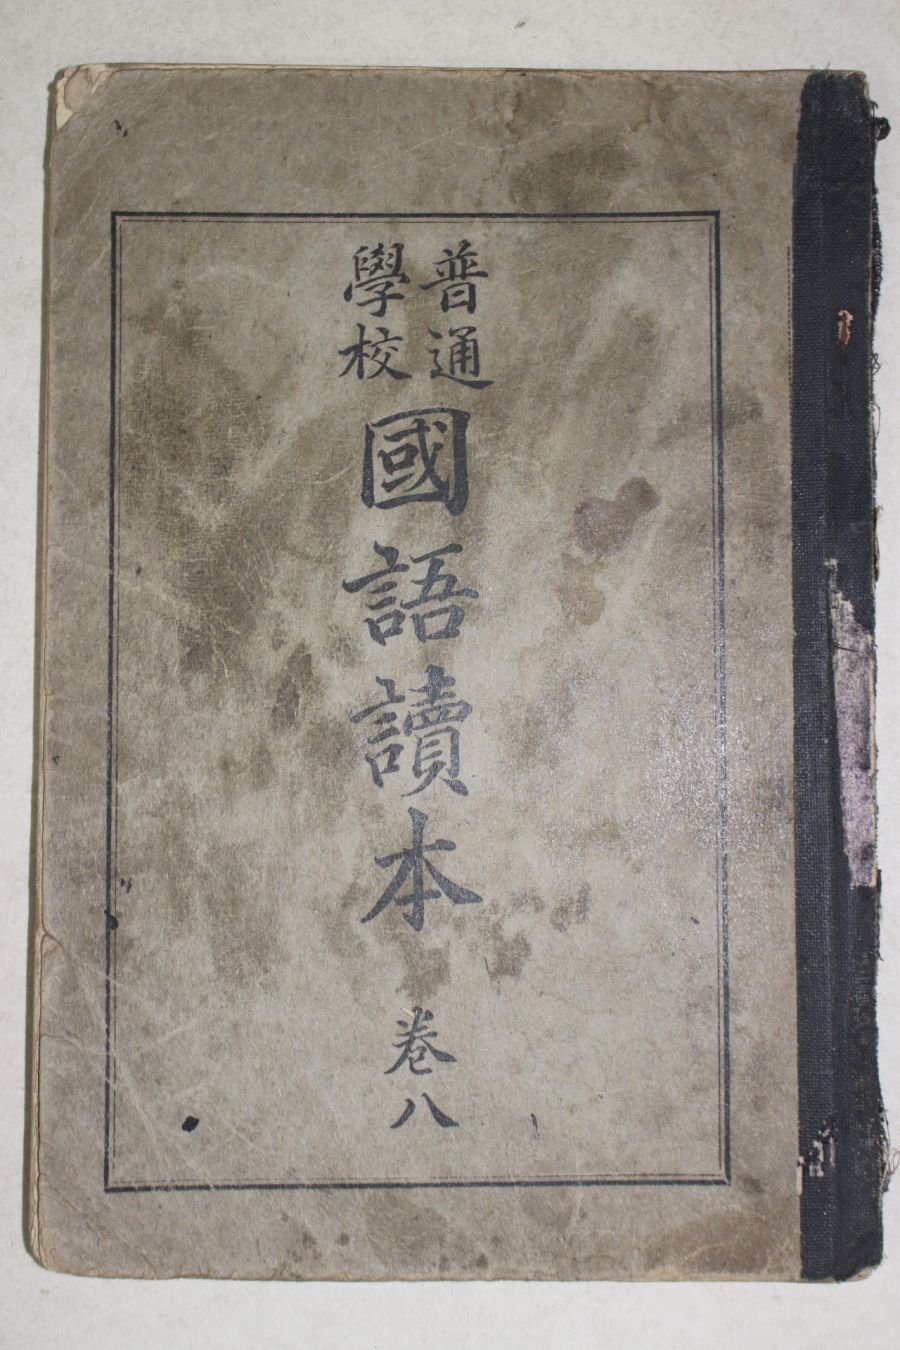 普通
學校
國語讀本
卷八